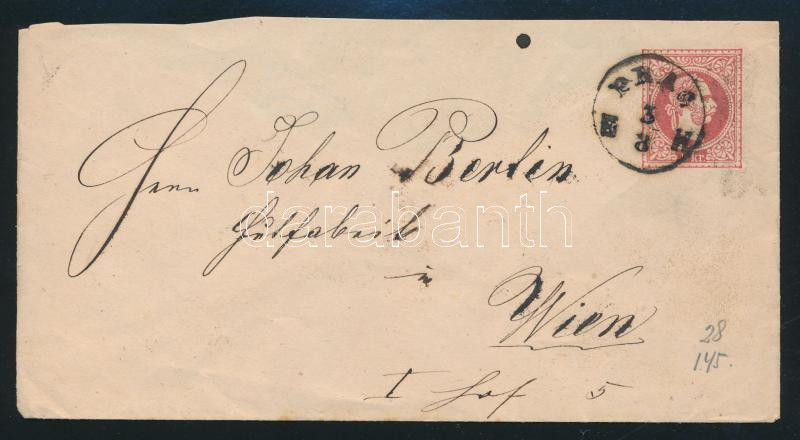 PRAG
3
8
M
KR.
Herrn Johan Berlin
Hutfabrik
in
Wien
I Hof 5
28
145.
darabanth